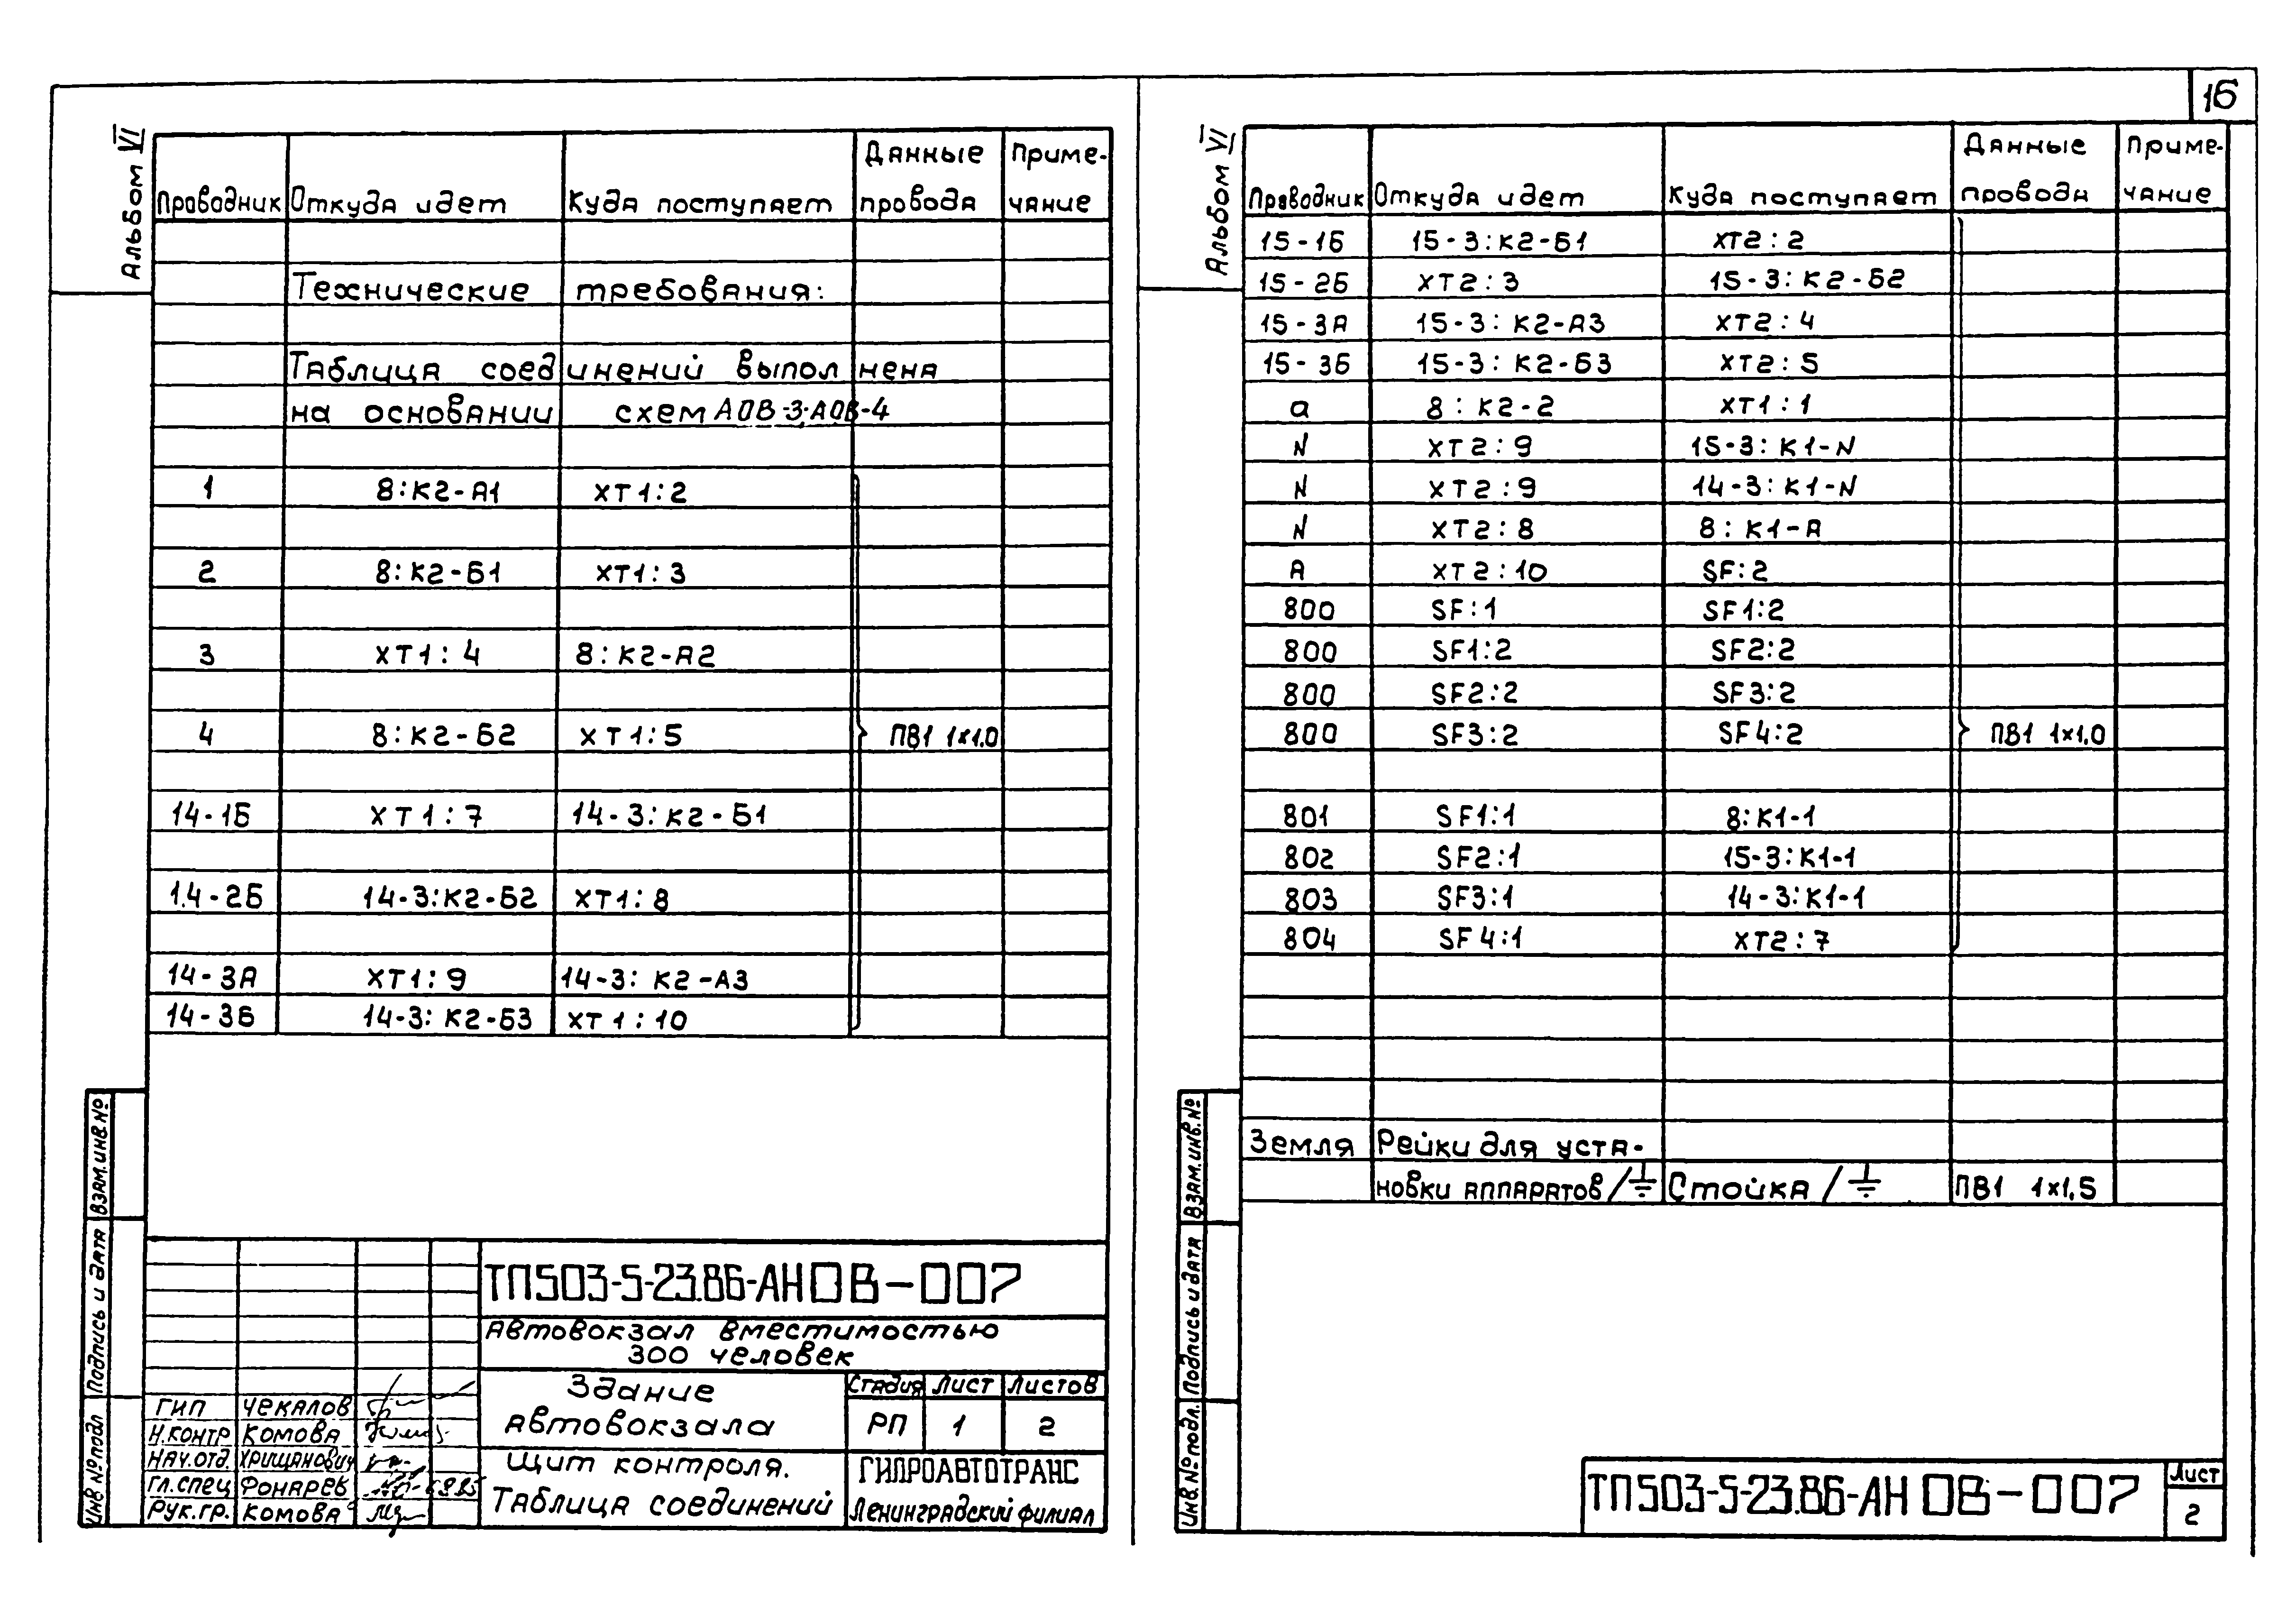 16
Альбом VI
Проводник Откуда идет Куда поступает Данные провода Примечание
Технические требования:
Таблица соединений выполнена
на основании схем АОВ-3, АОВ-4
1 8:К2-А1 ХТ1:2
2 8:К2-Б1 ХТ1:3
3 ХТ1:4 8:К2-А2
4 8:К2-Б2 ХТ1:5 ПВ1 1×1.0
14-1Б ХТ1:7 14-3:К2-Б1
14-2Б 14-3:К2-Б2 ХТ1:8
14-3А ХТ1:9 14-3:К2-А3
14-3Б 14-3:К2-Б3 ХТ1:10
Взам.инв.№
Подпись и дата
Инв №подл
ТП503-5-23.86-АНОВ-007
Автовокзал вместимостью
300 человек
Здание
автовокзала
Стадия Лист Листов
РП 1 2
Щит контроля.
Таблица соединений
ГИПРОАВТОТРАНС
Ленинградский филиал
ГИП Чекалов
Н.контр Комова
Нач.отд. Хрищанович
Гл.спец Фонарев
Рук.гр. Комова
Альбом VI
Проводник Откуда идет Куда поступает Данные провода Примечание
15-1Б 15-3:К2-Б1 ХТ2:2
15-2Б ХТ2:3 15-3:К2-Б2
15-3А 15-3:К2-А3 ХТ2:4
15-3Б 15-3:К2-Б3 ХТ2:5
а 8:К2-2 ХТ1:1
N ХТ2:9 15-3:К1-N
N ХТ2:9 14-3:К1-N
N ХТ2:8 8:К1-А
А ХТ2:10 SF:2
800 SF:1 SF1:2
800 SF1:2 SF2:2
800 SF2:2 SF3:2
800 SF3:2 SF4:2 ПВ1 1×1.0
801 SF1:1 8:К1-1
802 SF2:1 15-3:К1-1
803 SF3:1 14-3:К1-1
804 SF4:1 ХТ2:7
Земля Рейки для уста-
новки аппаратов/⏚ Стойка/⏚ ПВ1 1×1,5
Взам.инв.№
Подпись и дата
Инв.№подл.
ТП503-5-23.86-АНОВ-007
Лист
2